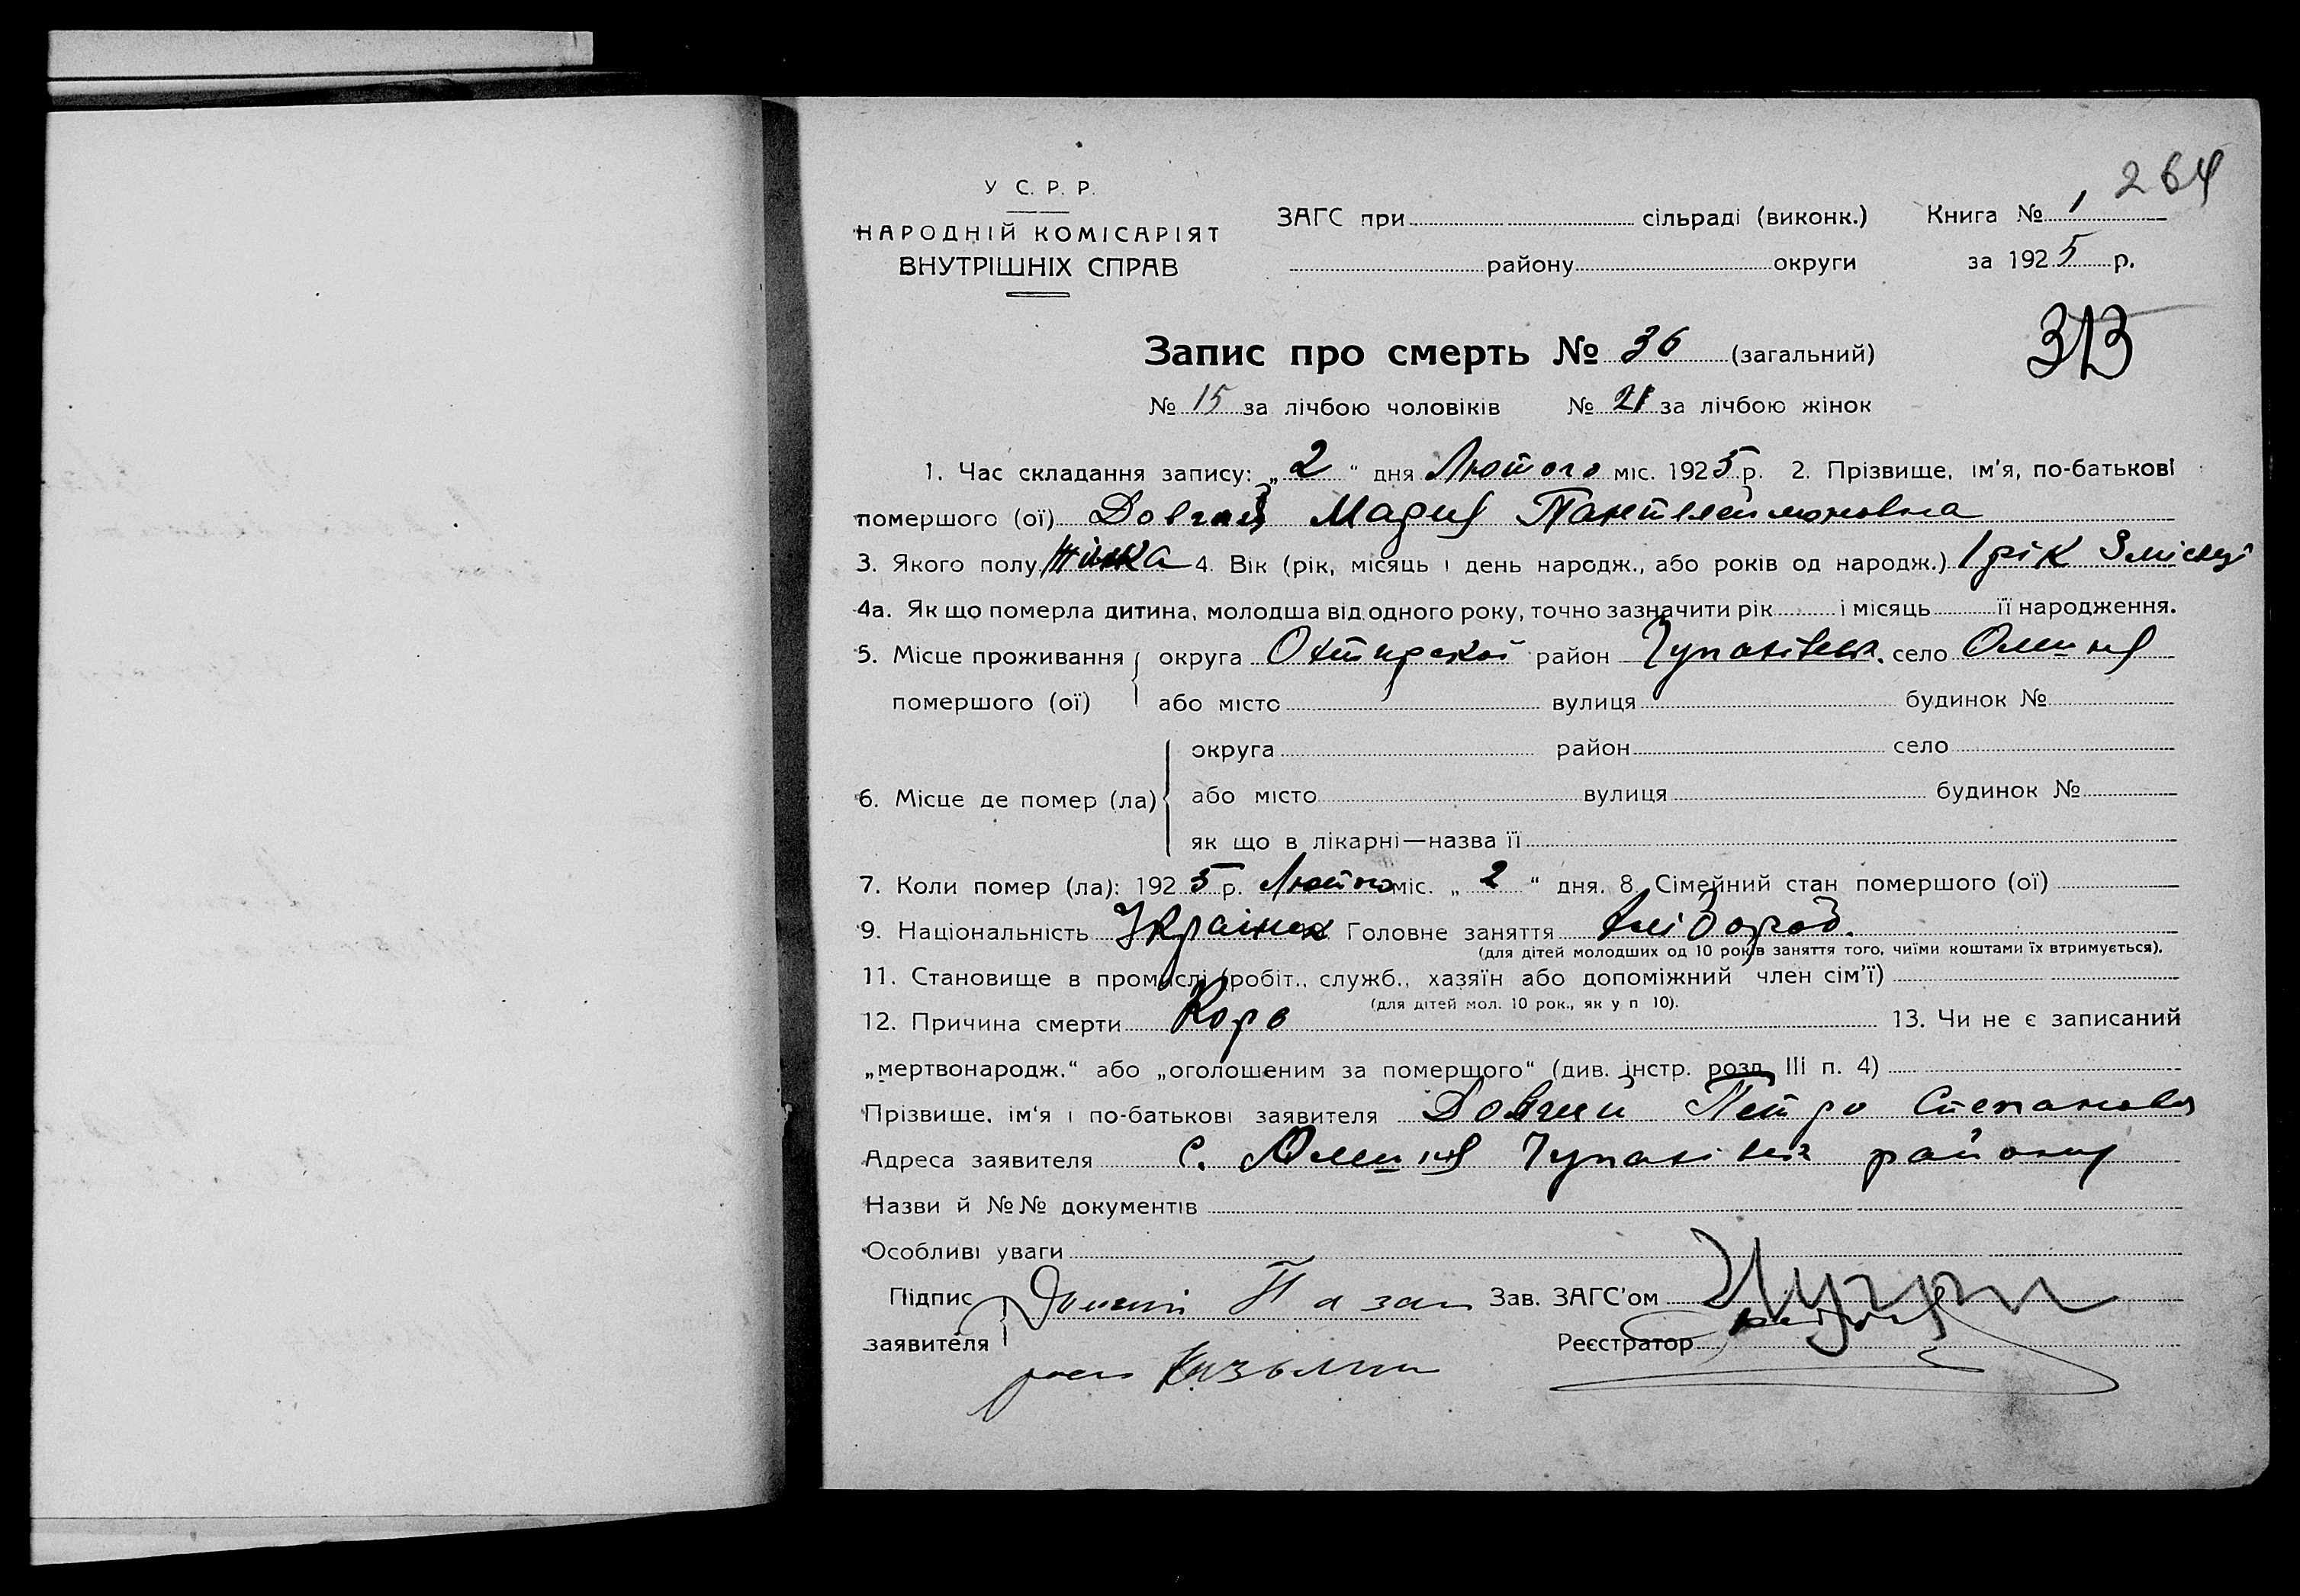 264
У С. Р. Р.
НАРОДНІЙ КОМІСАРІЯТ
ВНУТРІШНІХ СПРАВ
ЗАГС при сільраді (виконк.)
району округи
Книга № 1
за 1925 р.
313
Запис про смерть № 36 (загальний)
№ 15 за лічбою чоловіків № 21 за лічбою жінок
1. Час складання запису: „2“ дня Лютого міс. 1925 р. 2. Прізвище, ім'я, по-батькові
помершого (ої) Мария Пантелеймоновна
3. Якого полу жінка 4. Вік (рік, місяць і день народж., або років од народж.) 1 рік 3 місяці
4а. Як що померла дитина, молодша від одного року, точно зазначити рік і місяць її народження.
5. Місце проживання округа Охтирскої район село
помершого (ої) або місто вулиця будинок №
округа район село
6. Місце де помер (ла) або місто вулиця будинок №
як що в лікарні—назва її
7. Коли помер (ла): 1925 р. Лютого міс. „2“ дня. 8. Сімейний стан помершого (ої)
9. Національність Головне заняття хлібороб.
(для дітей молодших од 10 років заняття того, чиїми коштами їх втримується).
11. Становище в промислі (робіт., служб., хазяїн або допоміжний член сім'ї)
(для дітей мол. 10 рок., як у п 10).
12. Причина смерти Корь 13. Чи не є записаний
„мертвонародж.“ або „оголошеним за померщого“ (див. інстр. розд. III п. 4)
Прізвище, ім'я і по-батькові заявителя Довгий Петро
Адреса заявителя с. району
Назви й №№ документів
Особливі уваги
Підпис
заявителя
Зав. ЗАГС'ом
Реєстратор